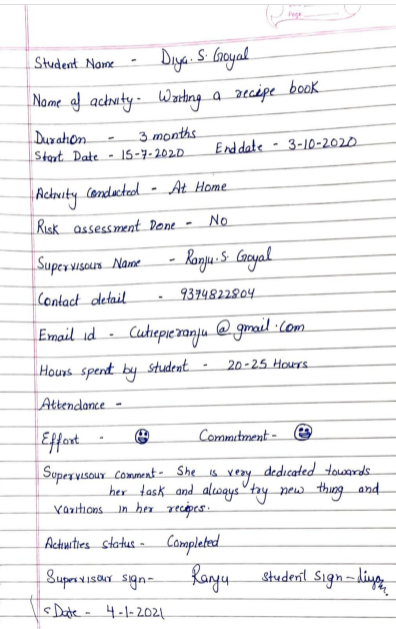 Page
Student Name - Diya. S. Goyal
Name of activity - Writing a recipe book
Duration - 3 months
Start Date - 15-7-2020 End date - 3-10-2020
Activity Conducted - At Home
Risk assessment Done - No
Supervisour Name - Ranju. S. Goyal
Contact detail - 9374822804
Email id - Cutiepieranju @ gmail.com
Hours spent by student - 20-25 Hours
Attendance -
Effort - 😃 Commitment - 😃
Supervisour Comment - She is very dedicated towards
her task and always try new thing and
varitions in her recipes.
Activities status - Completed
Supervisour sign - Ranju Student Sign - diya
Date - 4-1-2021